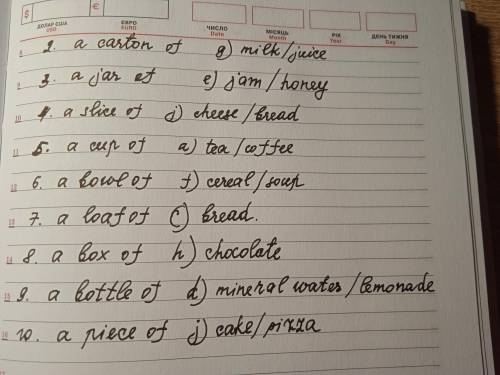 $ €
ДОЛАР США ЄВРО ЧИСЛО МІСЯЦЬ РІК ДЕНЬ ТИЖНЯ
USD EURO Date Month Year Day
8 2. a carton of g) milk/juice
9 3. a jar of e) jam/honey
10 4. a slice of j) cheese/bread
11 5. a cup of a) tea/coffee
12 6. a bowl of f) cereal/soup
13 7. a loaf of c) bread.
14 8. a box of h) chocolate
15 9. a bottle of d) mineral water/lemonade
16 10. a piece of j) cake/pizza